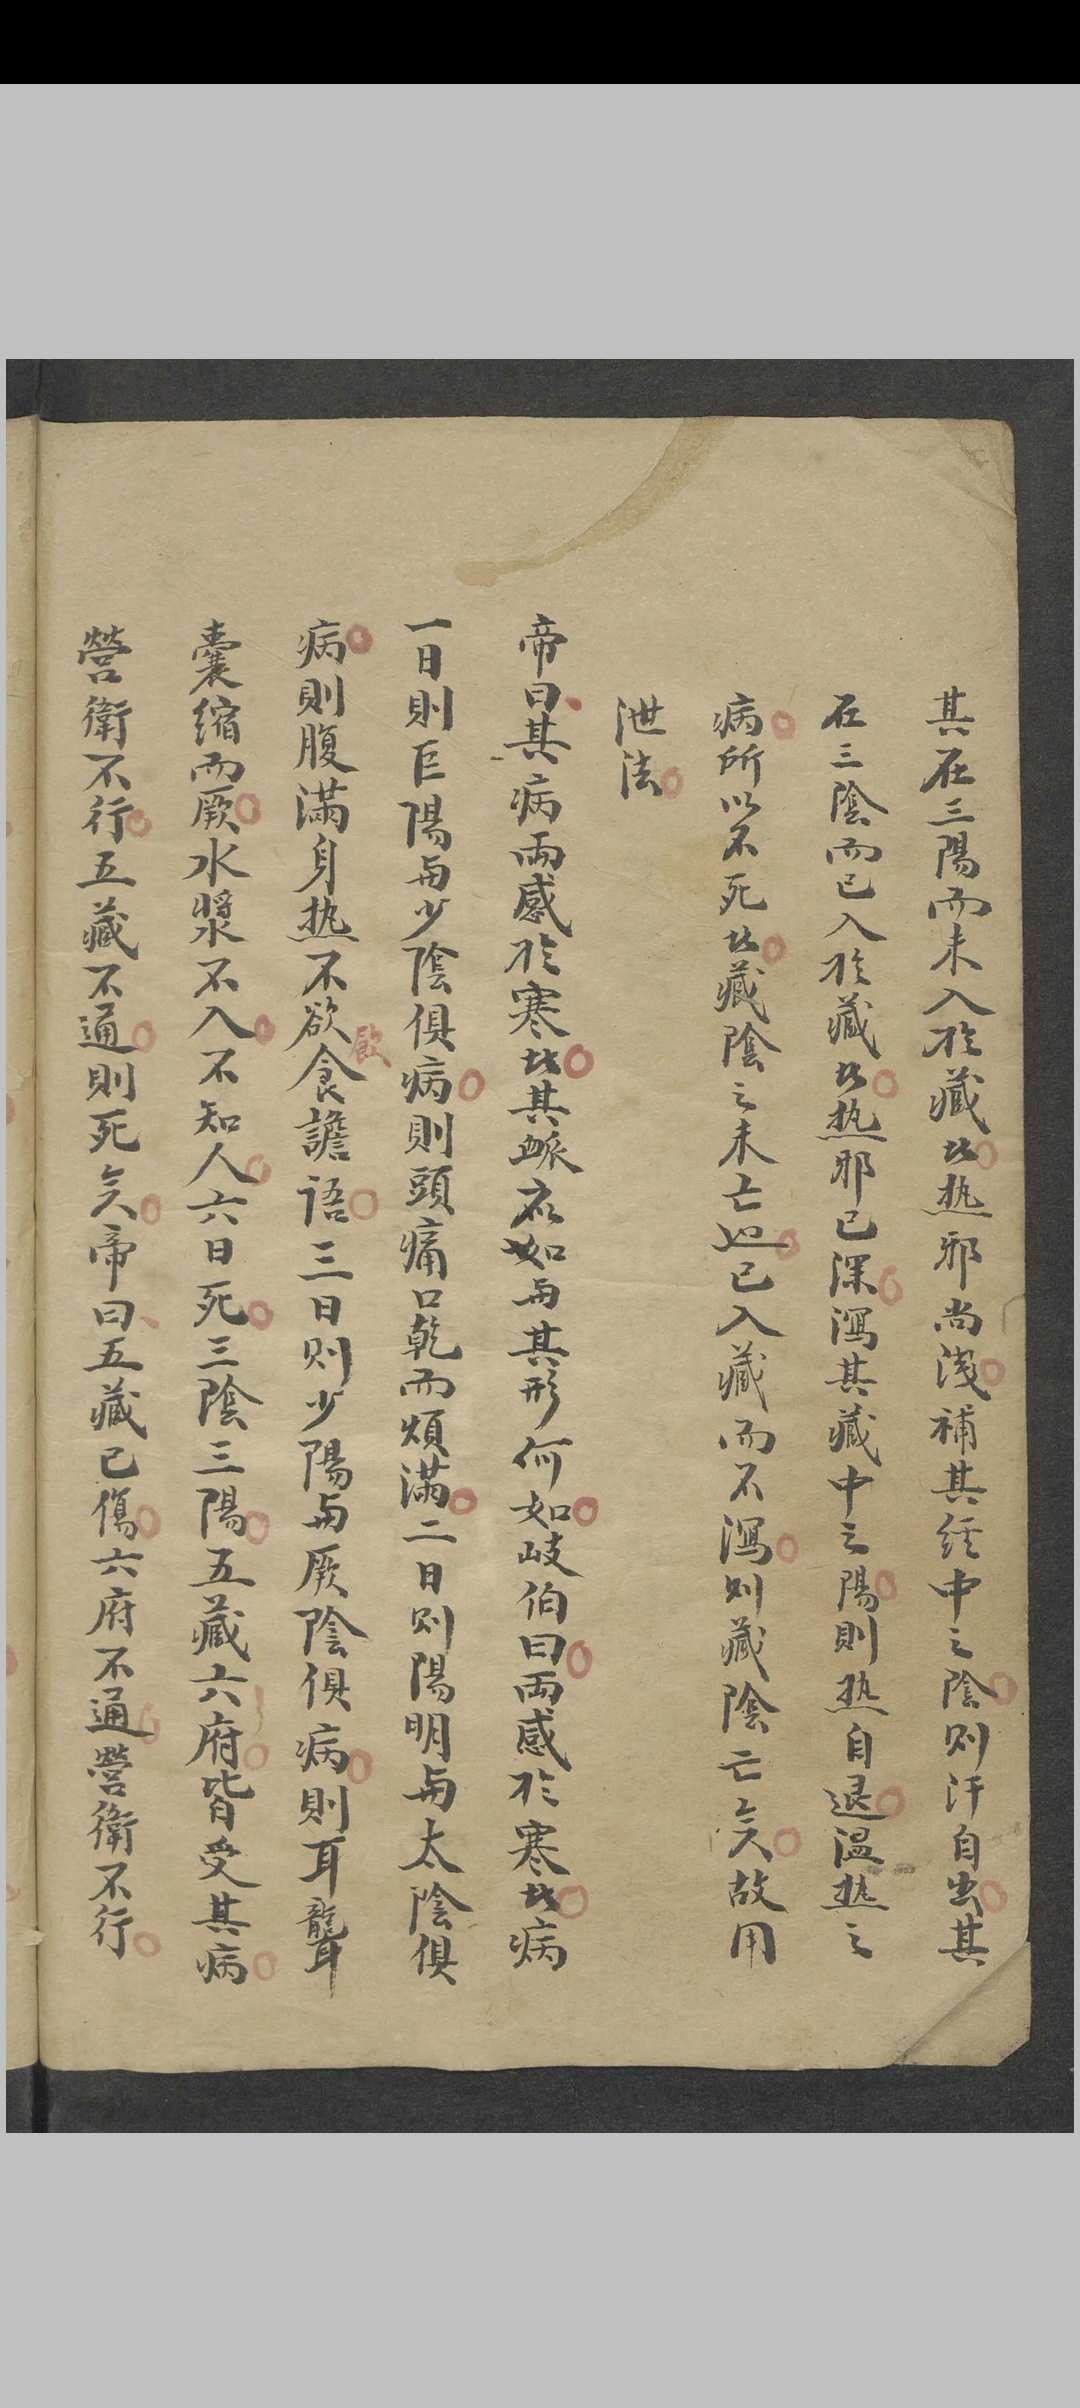 其在三陽而未入於藏者熱邪尚淺補其經中之陰則汗自出其
在三陰而已入於藏者热邪已深瀉其藏中之陽則热自退溫热之
病所以不死者藏陰之未亡也已入藏而不瀉则藏陰亡矣故用
泄法
帝曰其病兩感於寒者其脈應如与其形何如岐伯曰兩感於寒者病
一日則巨陽与少陰俱病則頭痛口乾而煩滿二日则陽明与太陰俱
病則腹滿身热不欲食譫语三日则少陽与厥陰俱病則耳聾
飲
囊缩而厥水漿不入不知人六日死三陰三陽五藏六府皆受其病
營衛不行五藏不通則死矣帝曰五藏已傷六府不通營衛不行